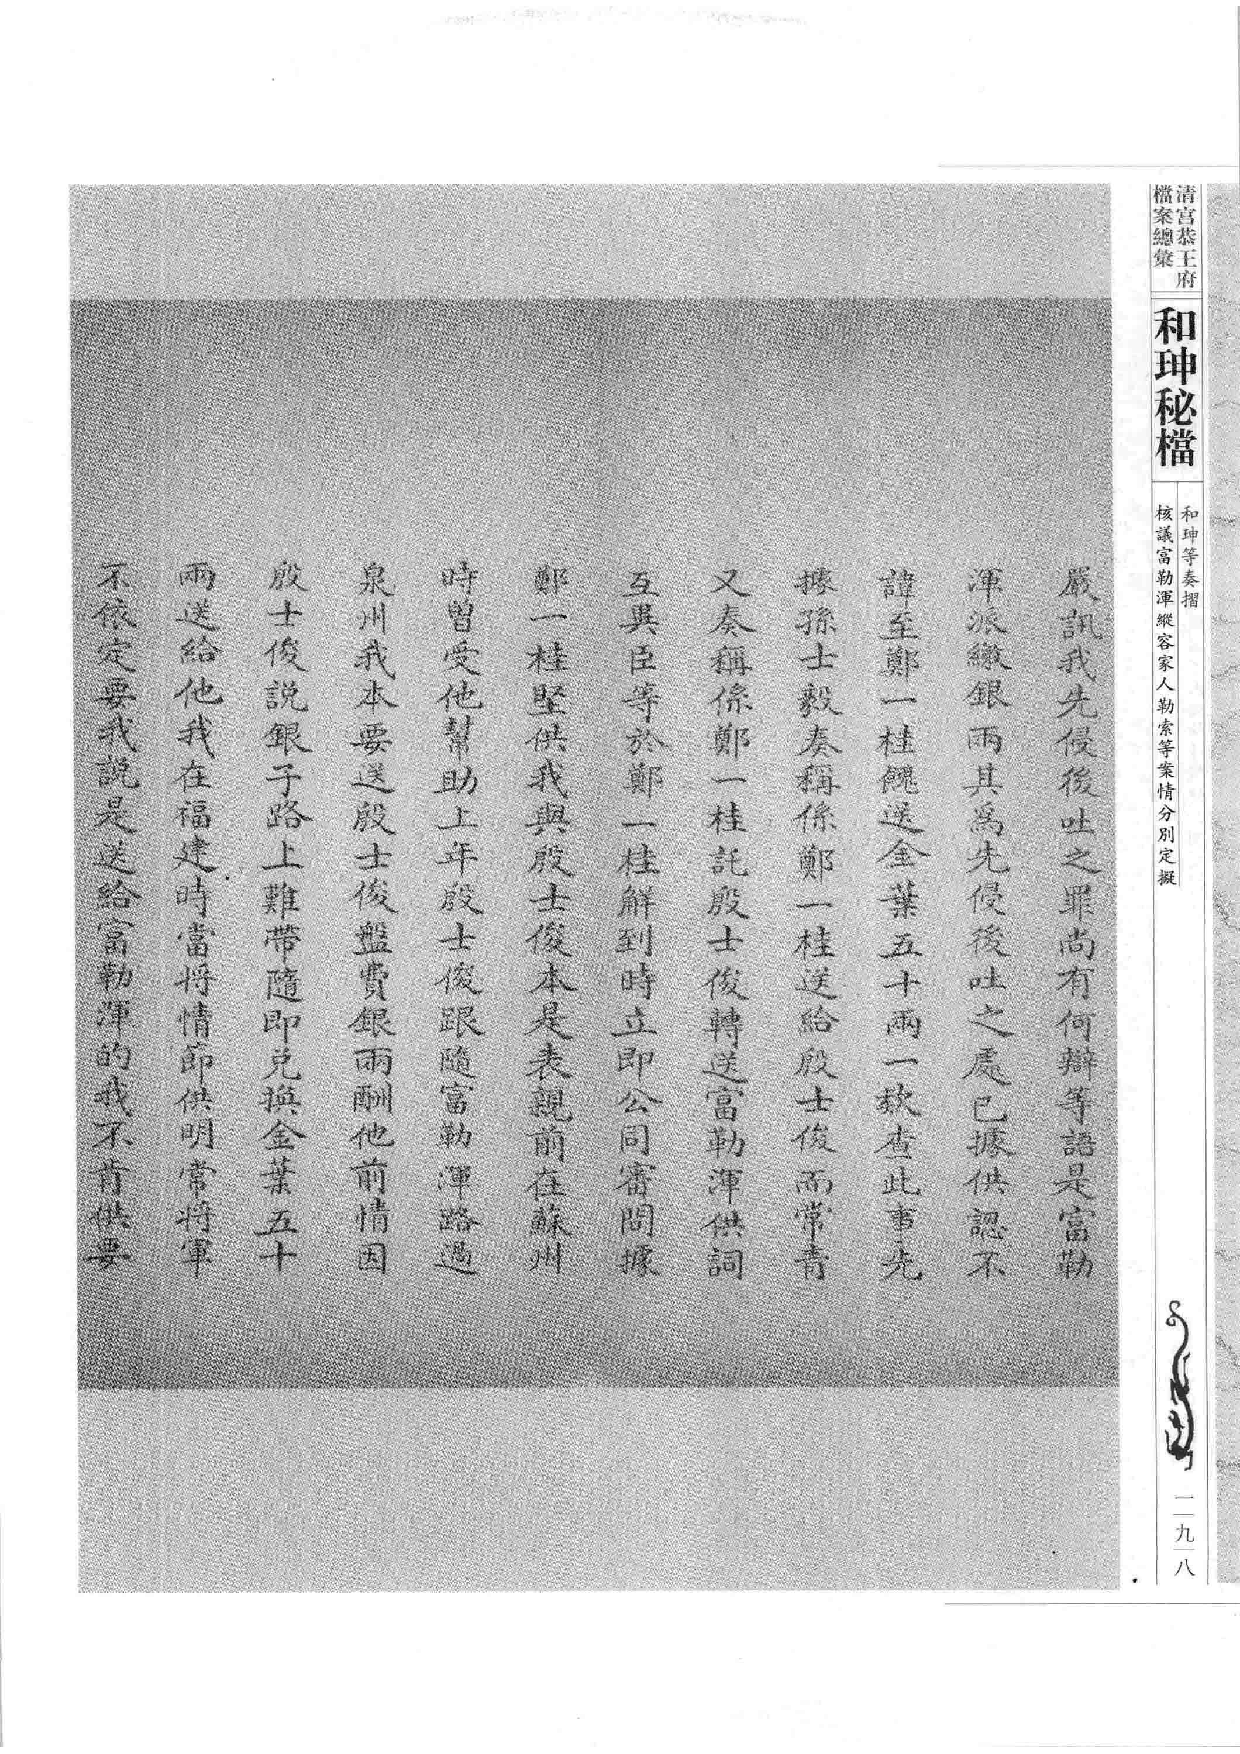 清宮恭王府
檔案總彙
和珅秘檔
和珅等奏摺
核議富勒渾縱容家人勒索等案情分別定擬
二九八
嚴訊我先侵後吐之罪尚有何辯等語是富勒
渾派繳銀兩其為先侵後吐之處已據供認不
諱至鄭一桂餽送金葉五十兩一欵查此事先
據孫士毅奏稱係鄭一桂送給殷士俊而常青
又奏稱係鄭一桂託殷士俊轉送富勒渾供詞
互異臣等於鄭一桂解到時立即公同審問據
鄭一桂堅供我與殷士俊本是表親前在蘇州
時曾受他幫助上年殷士俊跟隨富勒渾路過
泉州我本要送殷士俊盤費銀兩酬他前情因
殷士俊說銀子路上難帶隨即兌換金葉五十
兩送給他我在福建時當將情節供明常將軍
不依定要我說是送給富勒渾的我不肯供要